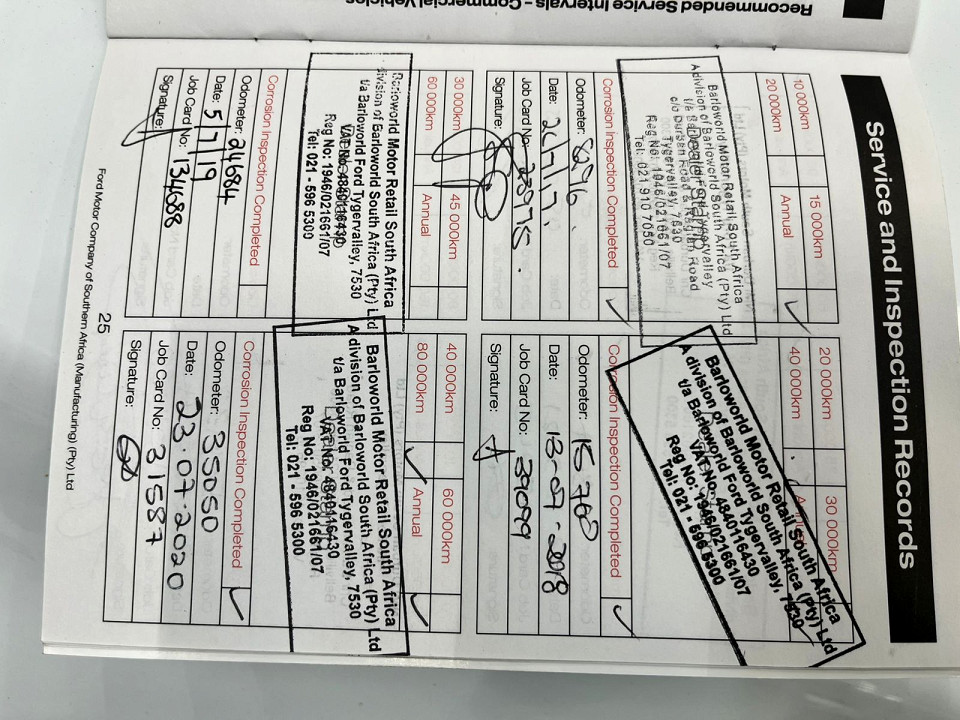 Recommended Service Intervals - Commercial Vehicles
Service and Inspection Records
10 000km 15 000km
20 000km Annual
Dealer Stamp
Barloworld Motor Retail South Africa
A division of Barloworld South Africa (Pty) Ltd
t/a Barloworld Ford Tygervalley
c/o Durban Road & Road
Tygervalley, 7530
Reg No: 1946/021661/07
Tel: 021 910 7050
Corrosion Inspection Completed
Odometer:
Date:
Job Card No:
Signature:
20 000km 30 000km
40 000km Annual
Barloworld Motor Retail South Africa
A division of Barloworld South Africa (Pty) Ltd
t/a Barloworld Ford Tygervalley, 7530
VAT No: 4840116430
Reg No: 1946/021661/07
Tel: 021 - 596 5300
Corrosion Inspection Completed
Odometer: 15760
Date: 13-07-2018
Job Card No: 39099
Signature:
30 000km 45 000km
60 000km Annual
Barloworld Motor Retail South Africa
division of Barloworld South Africa (Pty) Ltd
t/a Barloworld Ford Tygervalley, 7530
VAT No: 4840116430
Reg No: 1946/021661/07
Tel: 021 - 596 5300
Corrosion Inspection Completed
Odometer: 24684
Date: 5/7/19
Job Card No: 134088
Signature:
40 000km 60 000km
80 000km Annual
Barloworld Motor Retail South Africa
A division of Barloworld South Africa (Pty) Ltd
t/a Barloworld Ford Tygervalley, 7530
VAT No: 4840116430
Reg No: 1946/021661/07
Tel: 021 - 596 5300
Corrosion Inspection Completed
Odometer: 35050
Date: 23.07.2020
Job Card No: 31587
Signature:
25
Ford Motor Company of Southern Africa (Manufacturing) (Pty) Ltd